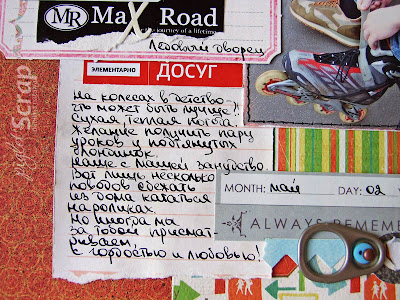 MR
MaX Road
the journey of a lifetime
Ледовый дворец
ЭЛЕМЕНТАРНО ДОСУГ
на колесах в детство.
что может быть лучше?!
Сухая, теплая погода.
Желание получить пару
уроков и подтянутых
Маше с Машей занудство.
Вот лишь несколько
поводов сбежать
из дома кататься
на роликах.
Но иногда ма
за тобой присмат-
ривает,
с гордостью и любовью!
MONTH: май DAY: 02
ALWAYS REMEMBE
Scrap